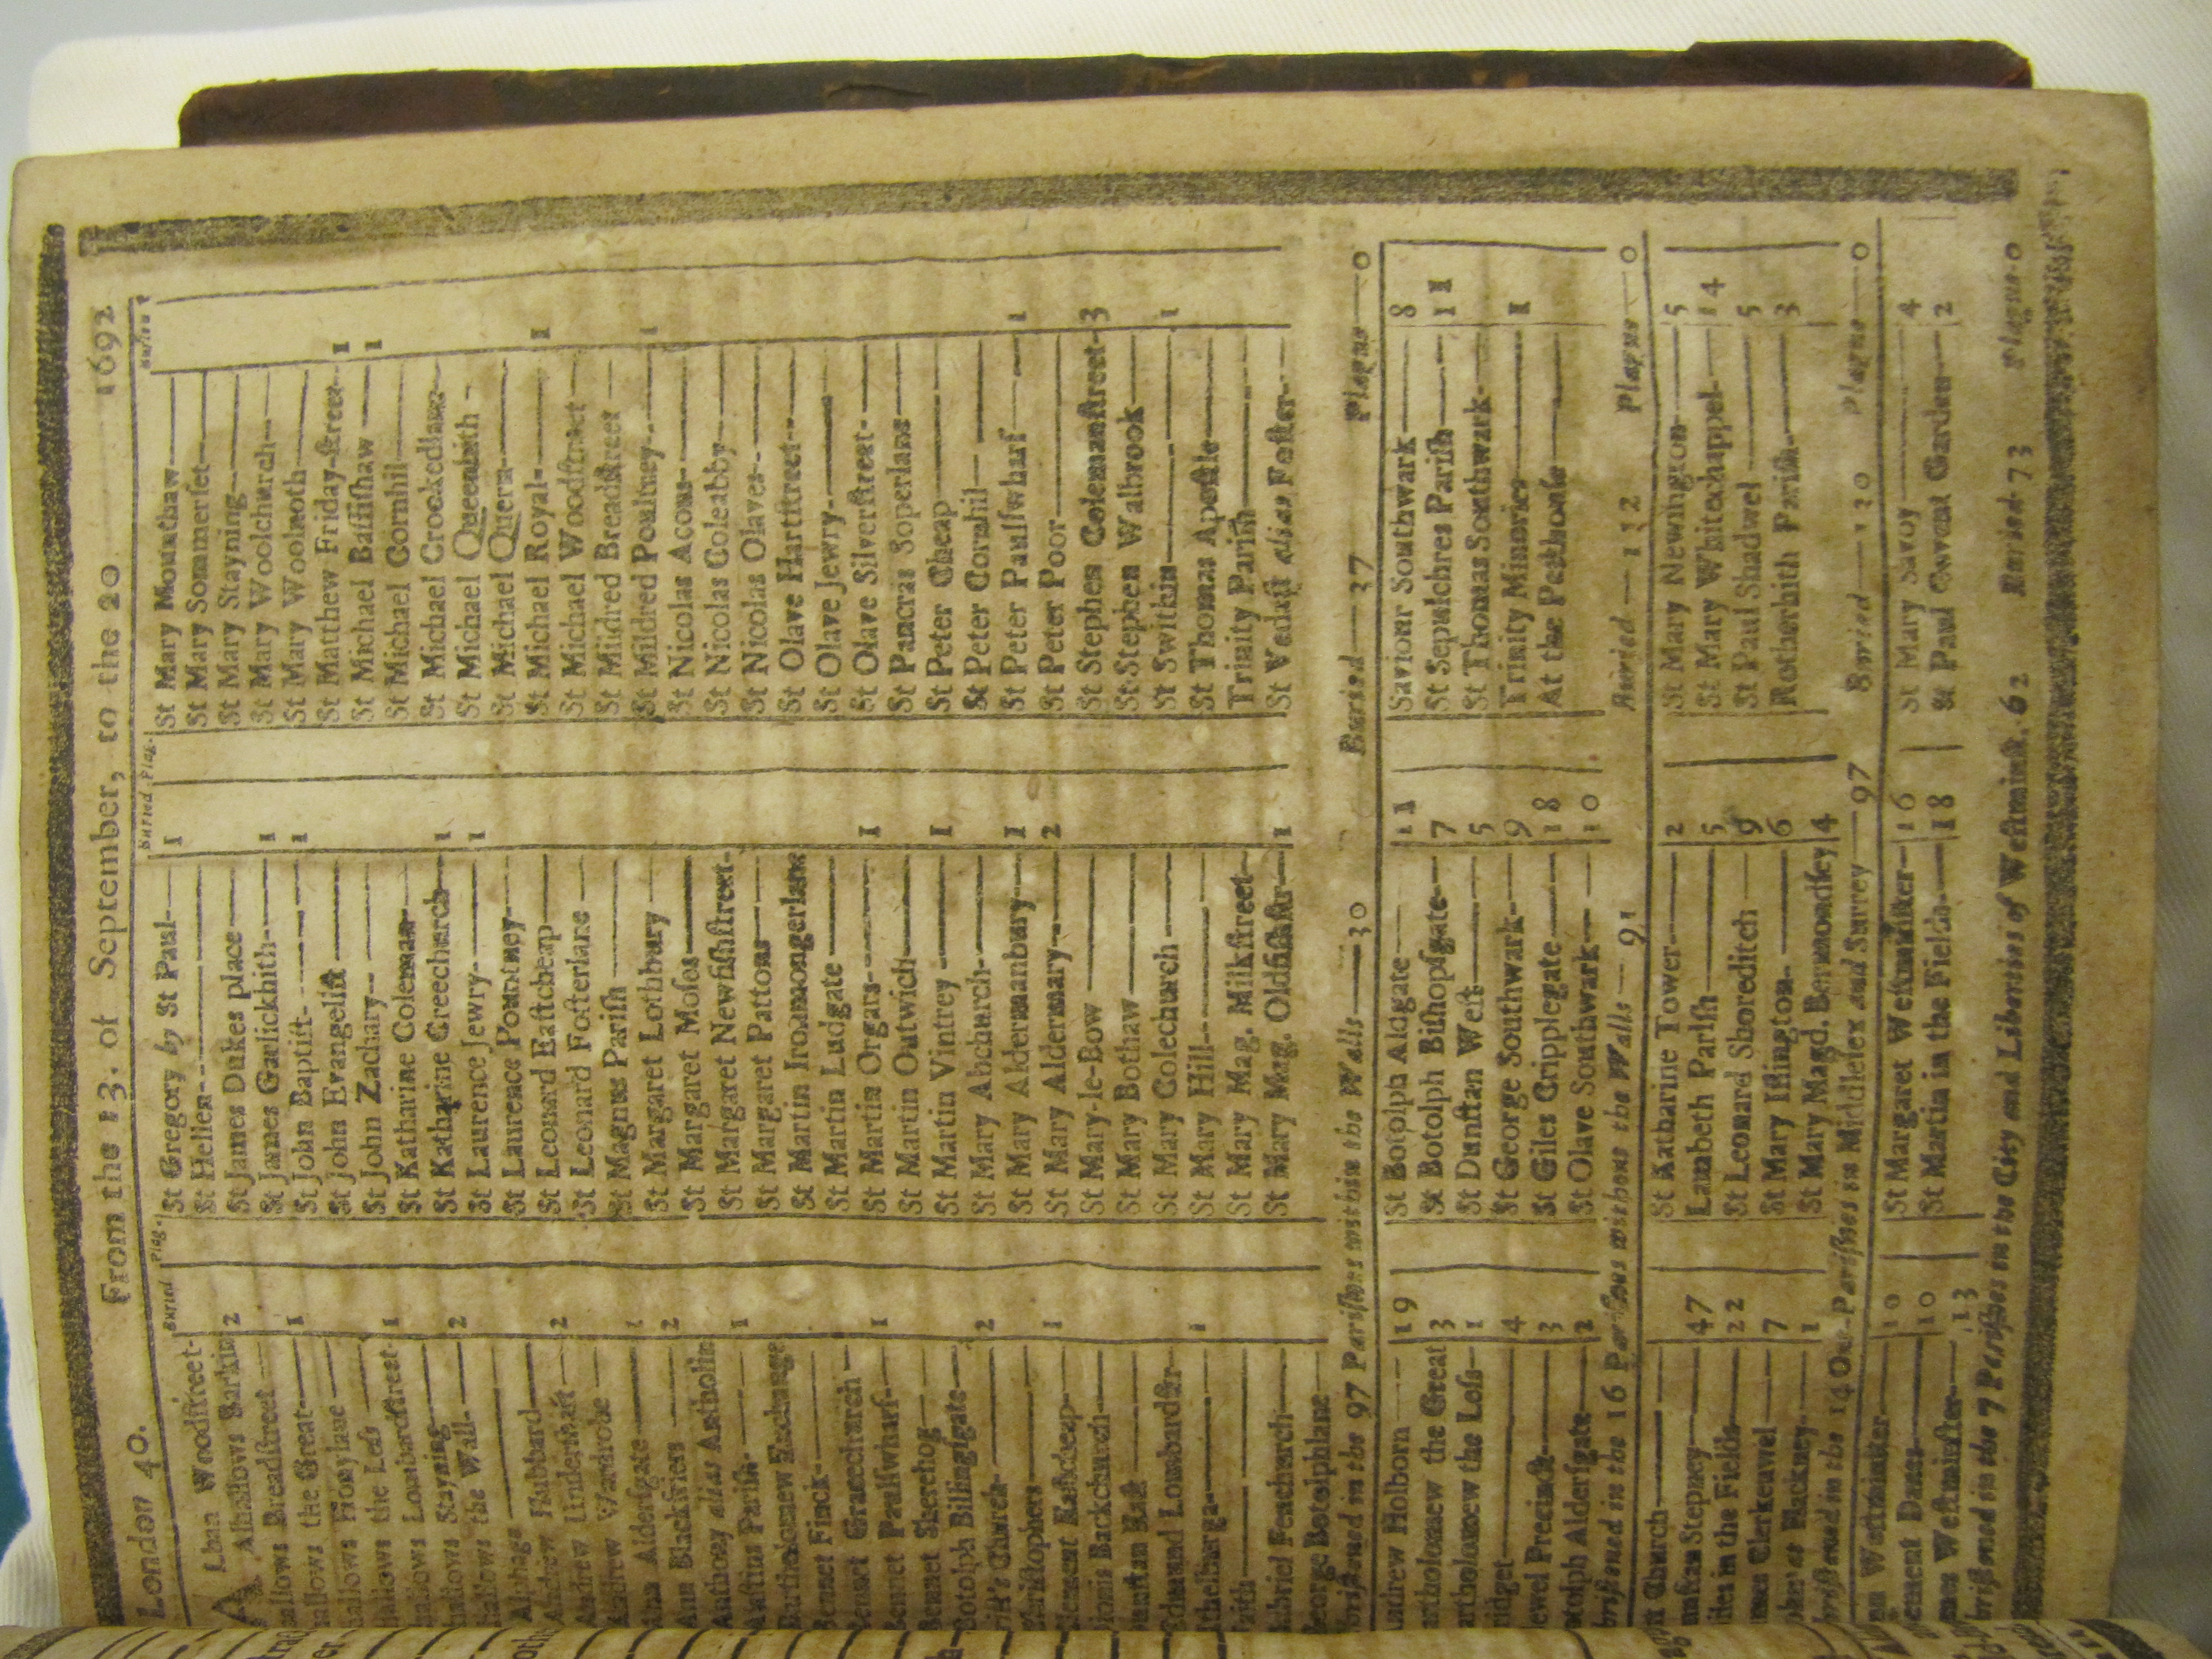 London 40. From the 13. of September, to the 20 1692
Buried Plag.
Alban Woodſtreet
Alhallows Barkin 2
allows Breadſtreet
allows the Great 1
hallows Honylane
hallows the Leſs 1
hallows Lombardſtreet
hallows Stayning 2
hallows the Wall
Alphage
Andrew Hubbard 2
Andrew Underſhaft
Andrew Wardrobe 1
Ann Alderſgate 2
Ann Blackfriers
Anthony alias Antholin 1
Auſtins Pariſh
Bartholomew Exchange
Bennet Finck
Bennet Gracechurch 1
Bennet Paulſwharf
Bennet Sherehog
Botolph Billingſgate 2
Church
Chriſtophers 1
Clement Eaſtcheap
Dionis Backchurch
Dunſtan Eaſt
Edmund Lombardſtr 1
Ethelburga
Faith
Gabriel Fenchurch
George Botolphlane
Buried Plag.
St Gregory by St Paul 1
St Hellen
St James Dukes place
St James Garlickhith 1
St John Baptiſt 1
St John Evangeliſt
St John Zachary
St Katharine Coleman
St Katharine Creechurch 1
St Laurence Jewry 1
St Laurence Pountney
St Leonard Eaſtcheap
St Leonard Foſterlane
St Magnus Pariſh
St Margaret Lothbury
St Margaret Moſes
St Margaret Newfiſhſtreet
St Margaret Pattons
St Martin Ironmongerlane
St Martin Ludgate
St Martin Orgars 1
St Martin Outwich
St Martin Vintrey 1
St Mary Abchurch
St Mary Aldermanbury 1
St Mary Aldermary 2
St Mary-le-Bow
St Mary Bothaw
St Mary Colechurch
St Mary Hill
St Mary Mag. Milkſtreet
St Mary Mag. Oldfiſhſtr 1
Buried
St Mary Mounthaw
St Mary Sommerſet
St Mary Stayning
St Mary Woolchurch
St Mary Woolnoth
St Matthew Friday-ſtreet 1
St Michael Baſſiſhaw 1
St Michael Cornhil
St Michael Crookedlane
St Michael Queenhith
St Michael Quern
St Michael Royal 1
St Michael Woodſtreet
St Mildred Breadſtreet
St Mildred Poultney 1
St Nicolas Acons
St Nicolas Coleabby
St Nicolas Olaves
St Olave Hartſtreet
St Olave Jewry
St Olave Silverſtreet
St Pancras Soperlane
St Peter Cheap
St Peter Cornhil
St Peter Paulſwharf 1
St Peter Poor
St Stephen Colemanſtreet 3
St Stephen Walbrook
St Swithin 1
St Thomas Apoſtle
Trinity Pariſh
St Vedaſt alias Foſter
briſtned in the 97 Pariſhes within the Walls 30 Buried 27 Plague 0
Andrew Holborn 19
artholomew the Great 3
artholomew the Leſs 1
ridget 4
ewel Precinct 3
otolph Alderſgate 2
St Botolph Aldgate 11
St Botolph Biſhopſgate 7
St Dunſtan Weſt 5
St George Southwark 9
St Giles Cripplegate 18
St Olave Southwark 10
Saviour Southwark 8
St Sepulchres Pariſh 11
St Thomas Southwark
Trinity Minories 1
At the Peſthouſe
briſtned in the 16 Pariſhes without the Walls 91 Buried 132 Plague 0
Church
unſtan Stepney 47
iles in the Fields 22
ames Clerkenwel 7
ohn at Hackney 1
St Katharine Tower 2
Lambeth Pariſh 5
St Leonard Shoreditch 9
St Mary Iſlington 6
St Mary Magd. Bermondſey 4
St Mary Newington 5
St Mary Whitechappel 14
St Paul Shadwel 5
Rotherhith Pariſh 3
briſtned in the 14 Out-Pariſhes in Middleſex and Surrey 97 Buried 120 Plague 0
Weſtminſter 10
ement Danes 10
ames Weſtminſter 13
St Margaret Weſtminſter 16
St Martin in the Fields 18
St Mary Savoy 4
St Paul Covent Garden 2
briſtned in the 7 Pariſhes in the City and Liberties of Weſtminſt. 62 Buried 73 Plague 0